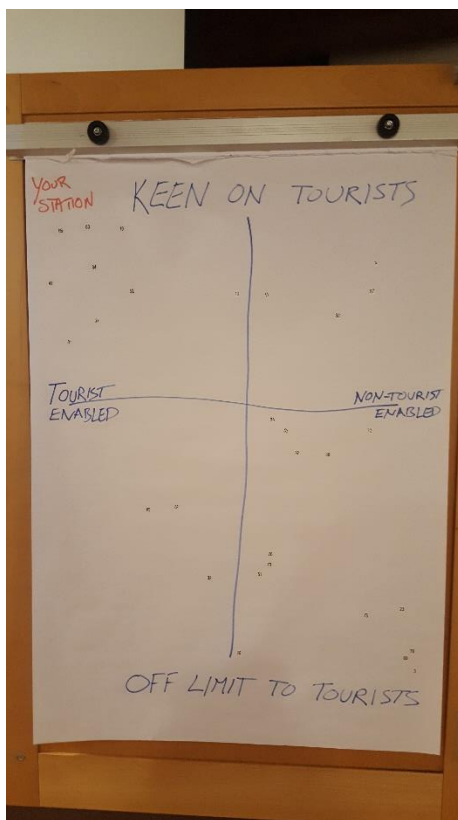 YOUR
STATION
KEEN ON TOURISTS
TOURIST
ENABLED
NON-TOURIST
ENABLED
OFF LIMIT TO TOURISTS